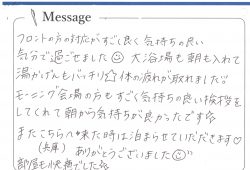 Message
フロントの方の対応がすごく良く気持ちの良い
気分で過ごせました☺ 大浴場も朝も入れて
湯かげんもバッチリ☆体の疲れが取れました
モーニング会場の方もすごく気持ちの良い挨拶を
してくれて朝から気持ちが良かったです☆
またこちらへ来た時は泊まらせていただきます♡
(兵庫) ありがとうございました☺
部屋も快適でした